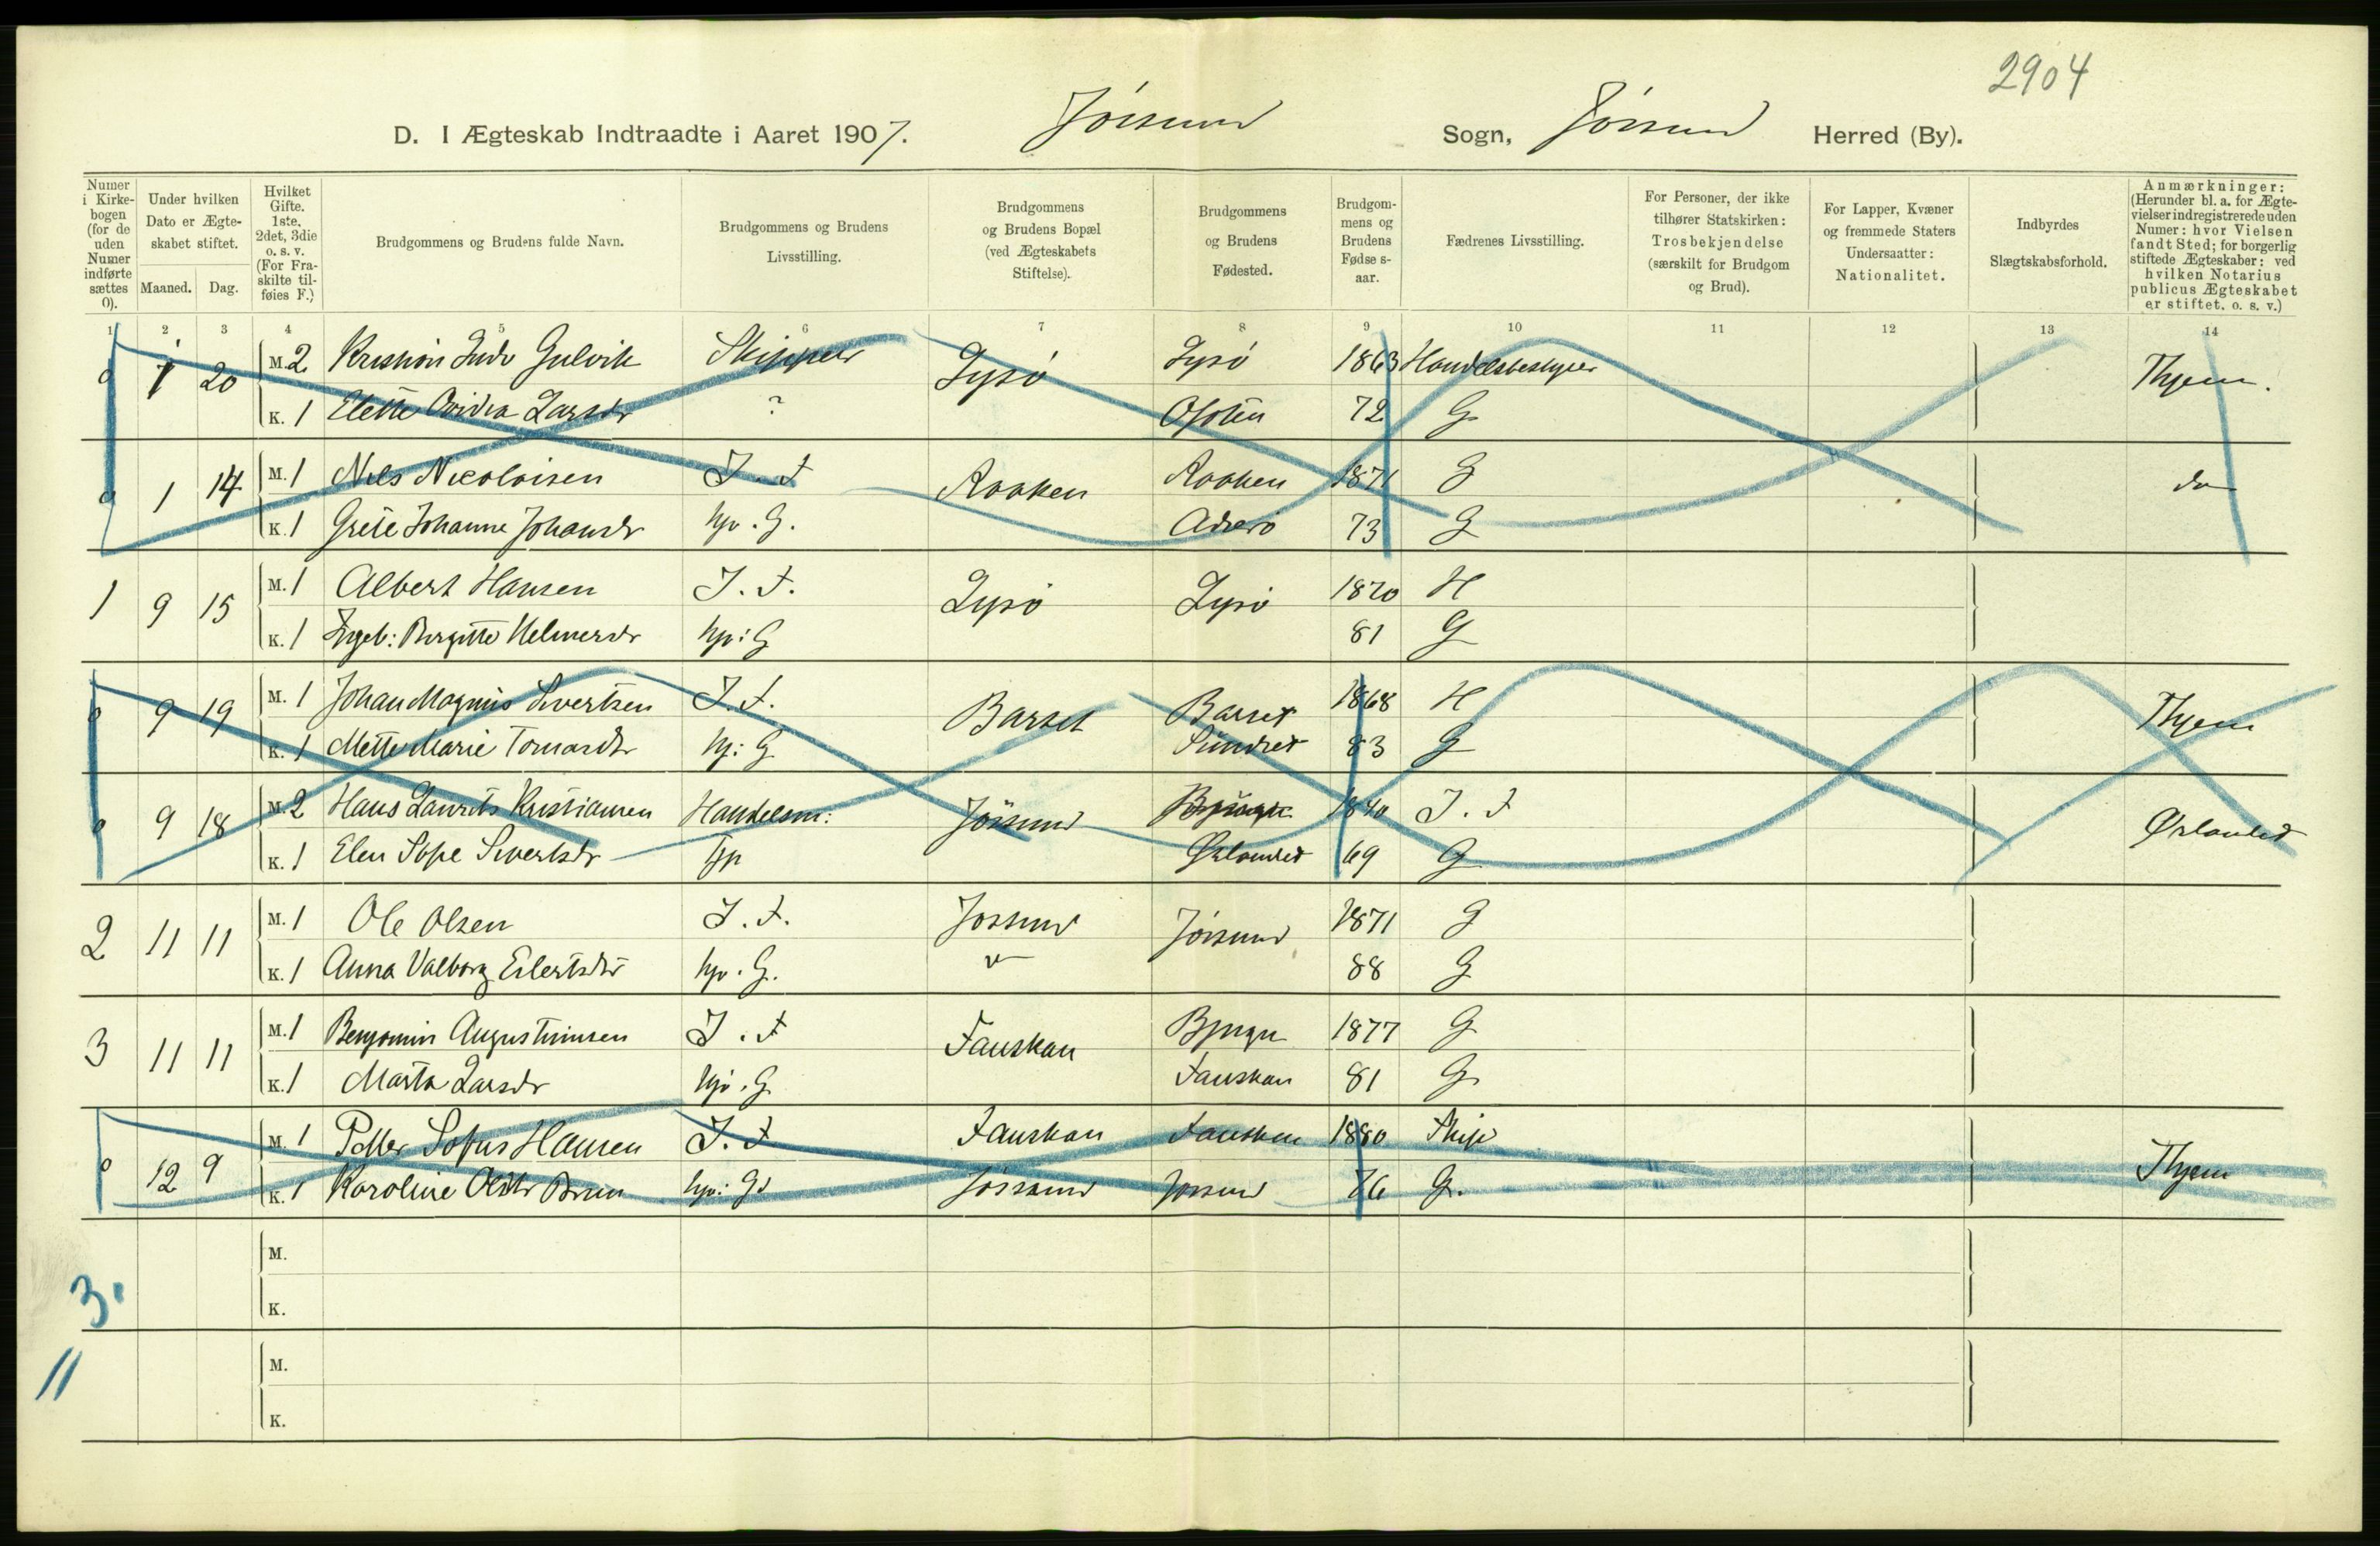 2904
D. I Ægteskab Indtraadte i Aaret 1907. Jössund Sogn, Jössund Herred (By).
Numer i Kirkebogen (for de uden Numer indførte sættes 0).
Under hvilken Dato er Ægteskabet stiftet.
Maaned. Dag.
Hvilket Gifte. 1ste, 2det, 3die o. s. v. (For Fraskilte tilføies F.)
Brudgommens og Brudens fulde Navn.
Brudgommens og Brudens Livsstilling.
Brudgommens og Brudens Bopæl (ved Ægteskabets Stiftelse).
Brudgommens og Brudens Fødested.
Brudgommens og Brudens Fødselsaar.
Fædrenes Livsstilling.
For Personer, der ikke tilhører Statskirken: Trosbekjendelse (særskilt for Brudgom og Brud).
For Lapper, Kvæner og fremmede Staters Undersaatter: Nationalitet.
Indbyrdes Slægtskabsforhold.
Anmærkninger: (Herunder bl. a. for Ægtevielser indregistrerede uden Numer: hvor Vielsen fandt Sted; for borgerlig stiftede Ægteskaber: ved hvilken Notarius publicus Ægteskabet er stiftet. o. s. v.)
1 2 3 4 5 6 7 8 9 10 11 12 13 14
0 1 20 M. 2 Skipper Lysö Lysö 1863 Handelsbestyrer
K. 1 ? 72 G
0 1 14 M. 1 Nils Nicolaisen J. F Raaken Raaken 1871 G do
K. 1 Grete Johanne Johansdr G. 73 G
1 9 15 M. 1 Albert Hansen J. F. Lysö Lysö 1870 H
K. 1 Ingeb: Birgitte Helmersdr G 81 G
0 9 19 M. 1 Johan Magnus Sivertsen J. F. Barset Barset 1868 H
K. 1 Mette Marie G 83 G
0 9 18 M. 2 Hans Laurits Kristiansen Handelsm: Jössund 1840 J. F Ørlandet
K. 1 Elen Sivertsdr Ørlandet 69 G
2 11 11 M. 1 Ole Olsen J. F. Jössund Jössund 1871 G
K. 1 Anna Valborg Eilertsdr G. 88 G
3 11 11 M. 1 Benjamin Augustinusen J. F Fauskan Bjugn 1877 G
K. 1 Marta Larsdr G 81 G
0 12 9 M. 1 Petter Sofus Hansen J. F Fauskan Fauskan 1880 Skip
K. 1 Karoline Jössund Jössund 76 G.
M.
K.
3
M.
11
K.